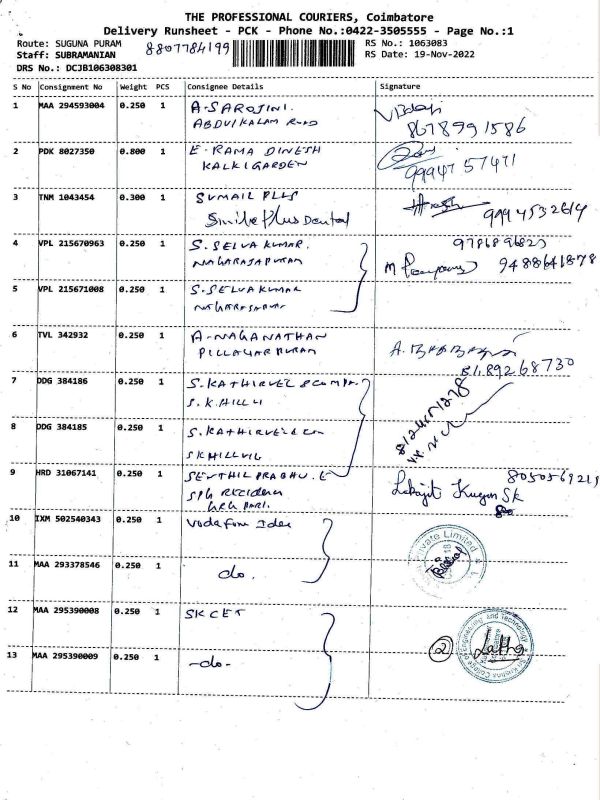 THE PROFESSIONAL COURIERS, Coimbatore
Delivery Runsheet - PCK - Phone No.:0422-3505555 - Page No.:1
Route: SUGUNA PURAM 8807784199 RS No.: 1063083
Staff: SUBRAMANIAN RS Date: 19-Nov-2022
DRS No.: DCJB106308301
S No Consignment No Weight PCS Consignee Details Signature
1 MAA 294593004 0.250 1 A-SAROJINI.
ABDULKALAM ROAD
8678991586
2 PDK 8027350 0.800 1 E. RAMA DINESH
KALKIGARDEN
99947 57471
3 TNM 1043454 0.300 1 SUMAIL PLUS
Smile Plus Dental
9994532614
4 VPL 215670963 0.250 1 S. SELVA KUMAR.
NAGARAJAPURAM
9786896823
9488641878
5 VPL 215671008 0.250 1 S. SELVAKUMAR
NAGARAJAPURAM
6 TVL 342932 0.250 1 A-NAGANATHAN
PILLAYARPURAM
8189268730
7 DDG 384186 0.250 1 S. KATHIRVEL &COMPA.
S.K.HILLU
8 DDG 384185 0.250 1 S. KATHIRVEL
9 HRD 31067141 0.250 1 SENTHIL PRABHU. E
SPG
8050569219
10 IXM 502540343 0.250 1 Vodafone Idea
11 MAA 293378546 0.250 1 do.
Private Limited
12 MAA 295390008 0.250 1 SKCET
Sri Krishna College of Engineering and Technology
13 MAA 295390009 0.250 1 -do-
2 Latha